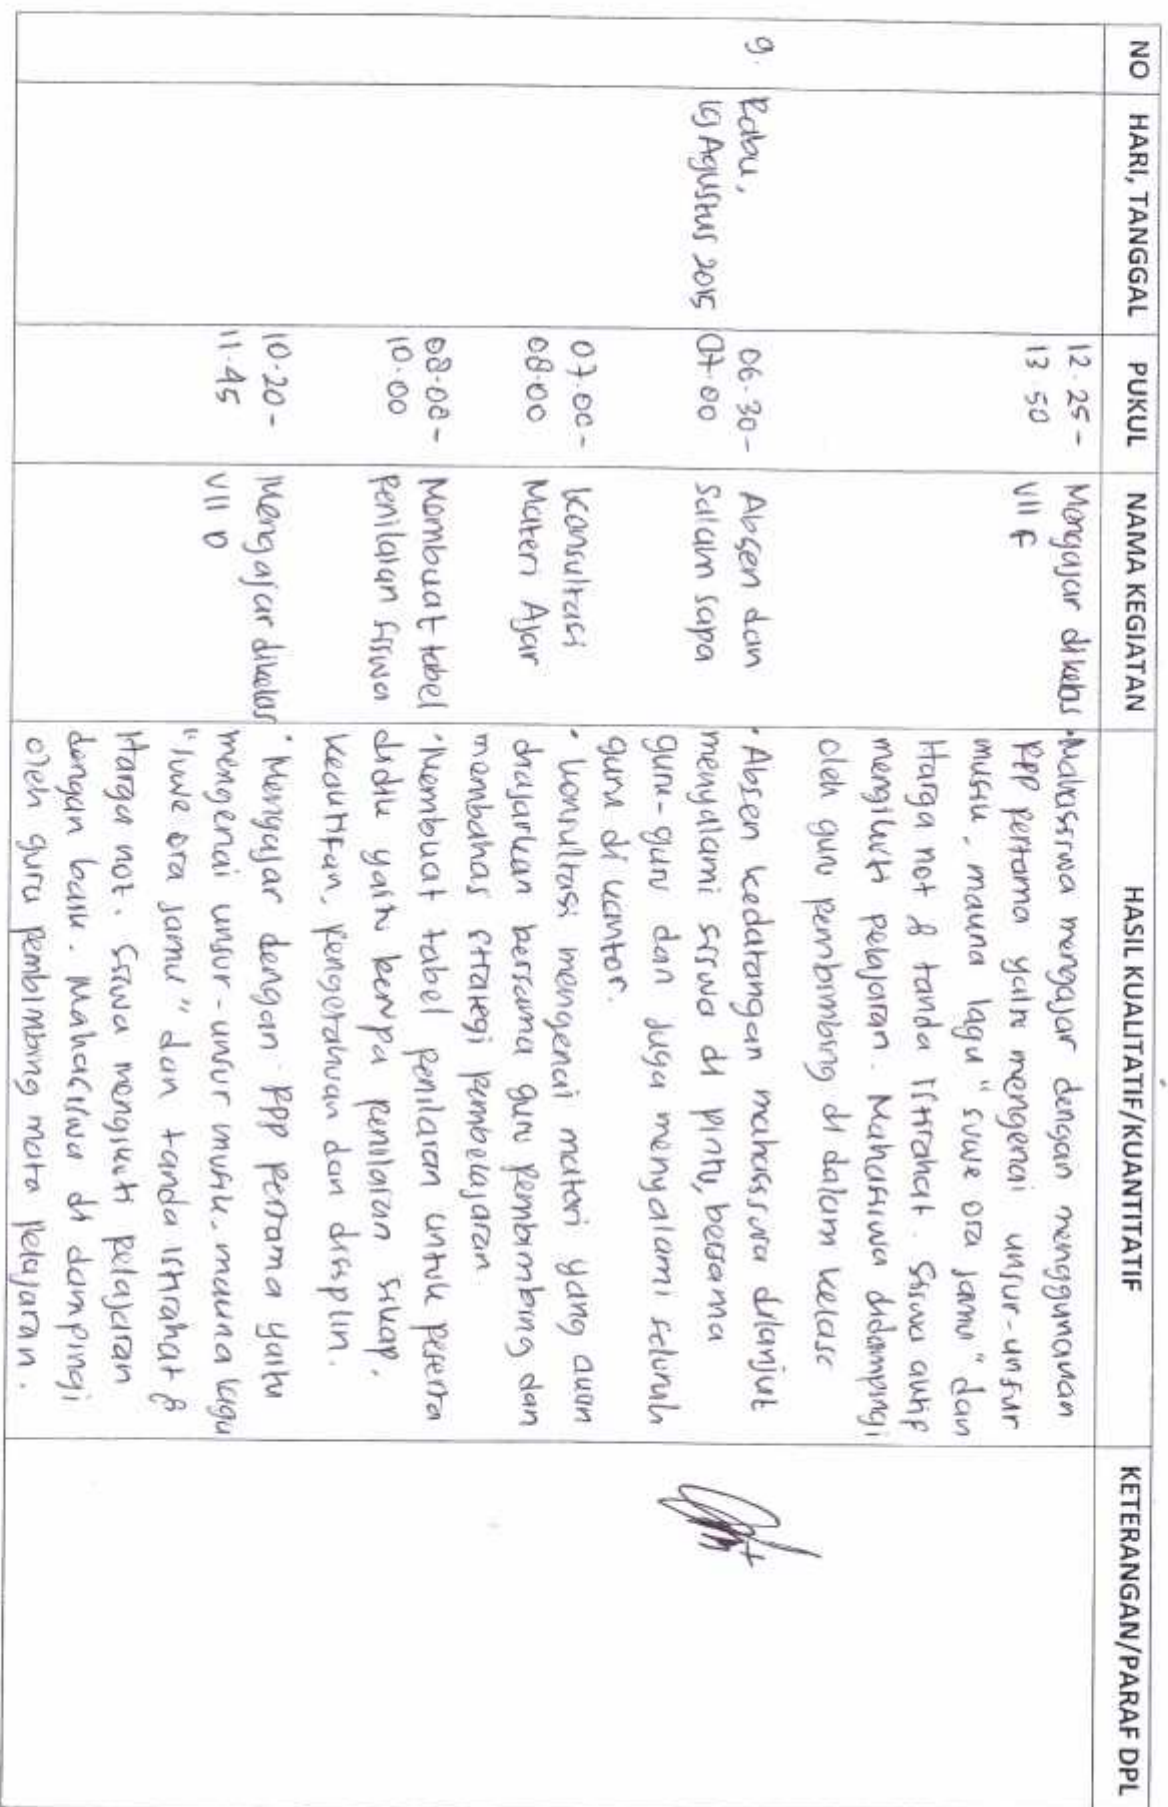 NO HARI, TANGGAL PUKUL NAMA KEGIATAN HASIL KUALITATIF/KUANTITATIF KETERANGAN/PARAF DPL
12.25 -
13.50
Mengajar dikelas
VII F
• Mahasiswa mengajar dengan menggunakan
RPP pertama yaitu mengenai unsur-unsur
musik, makna lagu "suwe ora jamu" dan
Harga not & tanda istirahat. Siswa aktif
mengikuti pelajaran. Mahasiswa didampingi
oleh guru pembimbing di dalam kelas
9. Rabu,
19 Agustus 2015
06.30 -
07.00
Absen dan
Salam sapa
• Absen kedatangan mahasiswa dilanjut
menyalami siswa di pintu, bersama
guru-guru dan juga menyalami seluruh
guru di kantor.
07.00 -
08.00
Konsultasi
Materi Ajar
• Konsultasi mengenai materi yang akan
diajarkan bersama guru pembimbing dan
membahas strategi pembelajaran.
08.00 -
10.00
Membuat tabel
Penilaian siswa
• Membuat tabel penilaian untuk peserta
didik yaitu berupa penilaian sikap,
keaktifan, pengetahuan dan disiplin.
10.20 -
11.45
Mengajar dikelas
VII D
• Mengajar dengan RPP pertama yaitu
mengenai unsur-unsur musik, makna lagu
"suwe ora jamu" dan tanda istirahat &
Harga not. Siswa mengikuti pelajaran
dengan baik. Mahasiswa di dampingi
oleh guru pembimbing mata pelajaran.